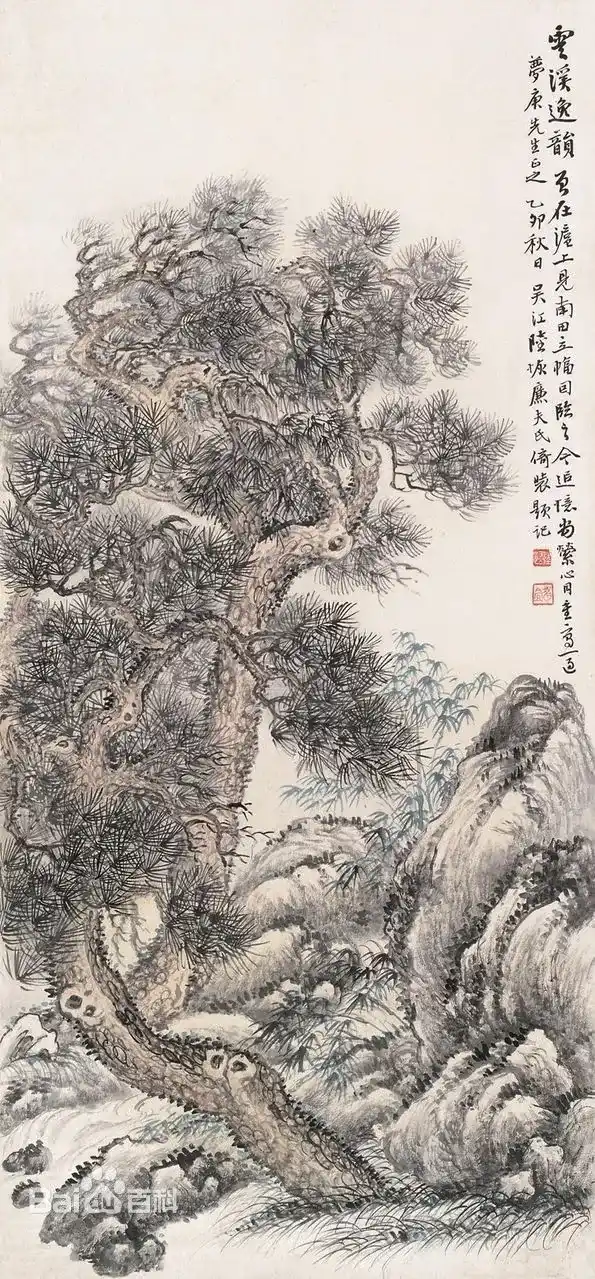 雲溪逸韻 在滬上見南田立幅因臨之今追憶尚縈心目重寫一過
夢庚先生正之 乙卯秋日 吳江陸恢廉夫氏倚裝題記
Bai百科